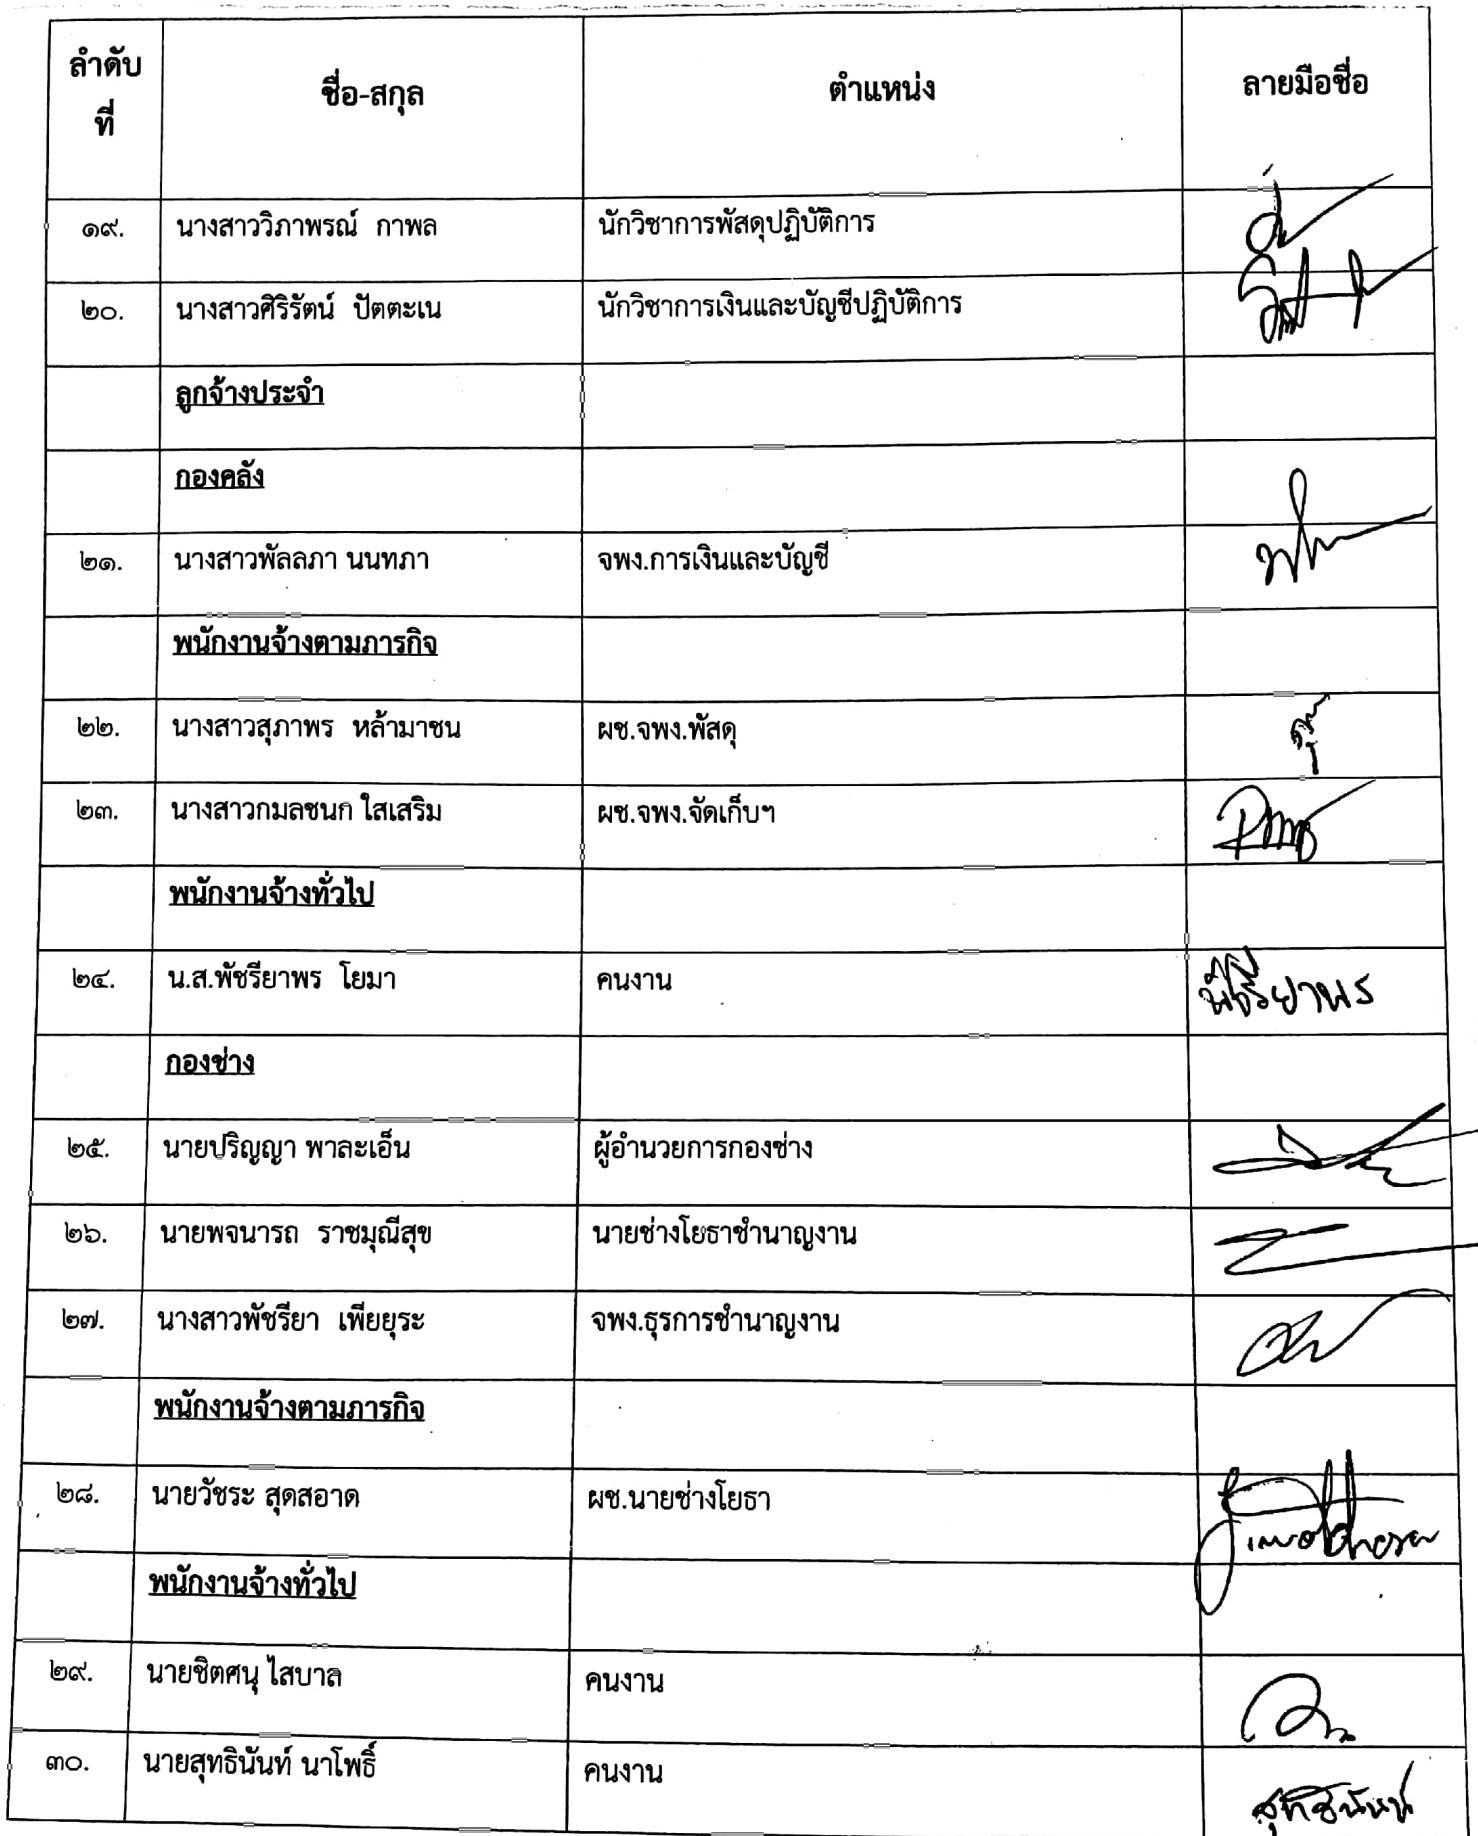 ลำดับ ชื่อ-สกุล ตำแหน่ง ลายมือชื่อ
ที่
๑๙. นางสาววิภาพรณ์ กาพล นักวิชาการพัสดุปฏิบัติการ
๒๐. นางสาวศิริรัตน์ ปัตตะเน นักวิชาการเงินและบัญชีปฏิบัติการ
ลูกจ้างประจำ
กองคลัง
๒๑. นางสาวพัลลภา นนทภา จพง.การเงินและบัญชี
พนักงานจ้างตามภารกิจ
๒๒. นางสาวสุภาพร หล้ามาชน ผช.จพง.พัสดุ
๒๓. นางสาวกมลชนก ใสเสริม ผช.จพง.จัดเก็บฯ
พนักงานจ้างทั่วไป
๒๔. น.ส.พัชรียาพร โยมา คนงาน พัชรียาพร
กองช่าง
๒๕. นายปริญญา พาละเอ็น ผู้อำนวยการกองช่าง
๒๖. นายพจนารถ ราชมุณีสุข นายช่างโยธาชำนาญงาน
๒๗. นางสาวพัชรียา เพียยุระ จพง.ธุรการชำนาญงาน
พนักงานจ้างตามภารกิจ
๒๘. นายวัชระ สุดสอาด ผช.นายช่างโยธา
พนักงานจ้างทั่วไป
๒๙. นายชิตศนุ ไสบาล คนงาน
๓๐. นายสุทธินันท์ นาโพธิ์ คนงาน สุทธินันท์